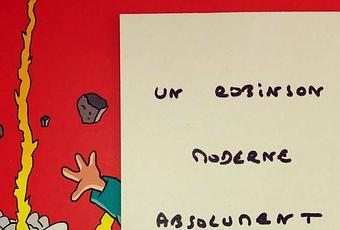 UN ROBINSON
MODERNE
ABSOLUMENT